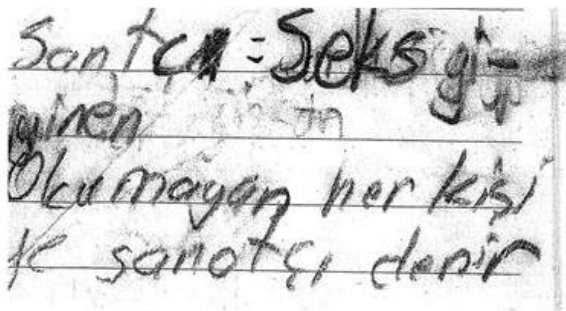 Santçı = Seksi gi-
yinen
Okumayan her kişi
ye sanatçı denir